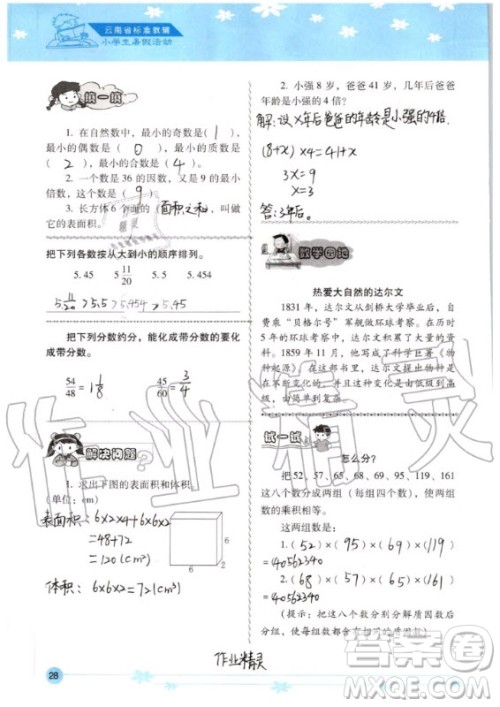 云南省标准教辅
小学生暑假活动
试一试
1. 在自然数中，最小的奇数是( 1 )，
最小的偶数是( 0 )，最小的质数是
( 2 )，最小的合数是( 4 )。
2. 一个数是 36 的因数，又是 9 的最小倍
数，这个数是( 9 )
3. 长方体 6 个面的(面积之和)，叫做
它的表面积。
把下列各数按从大到小的顺序排列。
5.45 5 11/20 5.5 5.454
5 11/20 > 5.5 > 5.454 > 5.45
把下列分数约分，能化成带分数的要化
成带分数。
54/48 = 1 1/8 45/60 = 3/4
解决问题
1. 求出下图的表面积和体积。
(单位：cm)
表面积：6×2×4+6×6×2
=48+72
=120(cm²)
6
6
2
体积：6×6×2=72(cm³)
28
2. 小强 8 岁，爸爸 41 岁，几年后爸爸
年龄是小强的 4 倍？
解：设x年后爸爸的年龄是小强的4倍。
(8+x)×4=41+x
3x=9
x=3
答：3年后。
数学园地
热爱大自然的达尔文
1831 年，达尔文从剑桥大学毕业后，自
费乘“贝格尔号”军舰做环球考察。在历时
5 年的环球考察中，达尔文积累了大量的资
料。1859 年 11 月，他写成了科学巨著《物
种起源》。在这部书里，达尔文说明物种是
在不断变化的，并且这种变化是由低级到高
级，由简单到复杂。
试一试
怎么分？
把 52、57、65、68、69、95、119、161
这八个数分成两组（每组四个数），使两数
的乘积相等。
这两组数是：
1. ( 52 )×( 95 )×( 69 )×( 119 )
=40565720
2. ( 68 )×( 57 )×( 65 )×( 161 )
=40565720
(提示：把这八个数分别分解质因数后，
使每组都含有相同的质因数)
作业精灵
作业精灵
答案圈
MXQE.COM